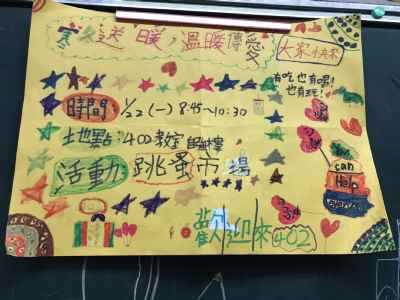 寒冬送暖,溫暖傳愛
大家快來
有吃也有喝!
也有玩!
時間:1/22(一) 8:45~10:30
地點:402教室
活動:跳蚤市場
You can Help
歡迎來402